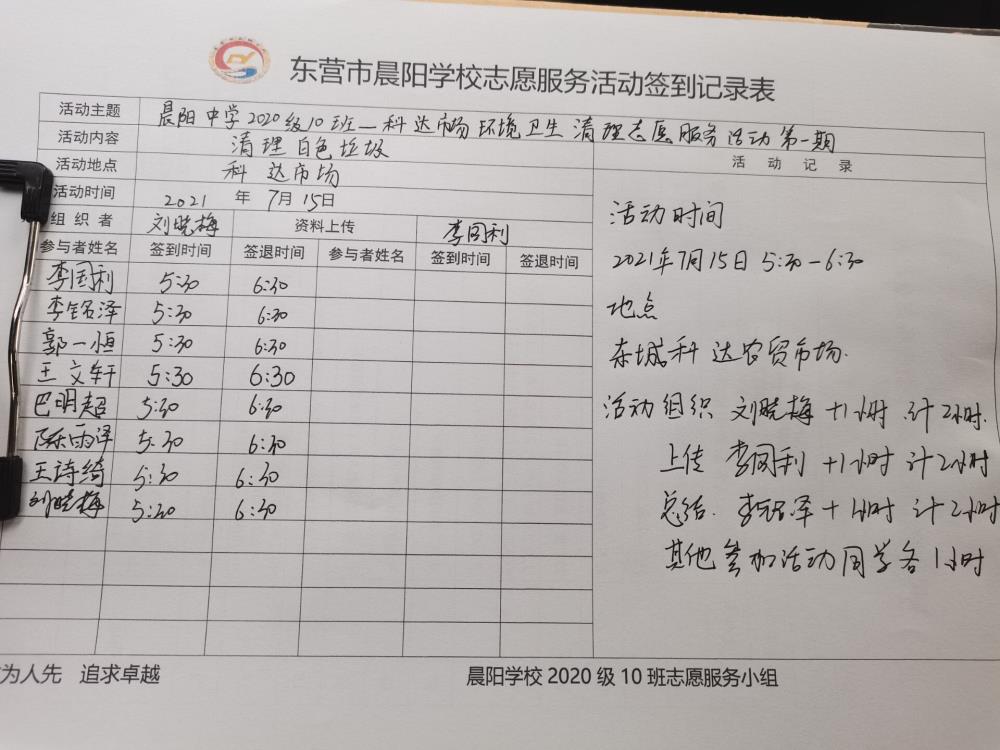 东营市晨阳学校志愿服务活动签到记录表
活动主题 晨阳中学2020级10班—科达市场环境卫生清理志愿服务活动第一期
活动内容 清理白色垃圾
活动地点 科达市场
活动时间 2021年7月15日
组织者 刘晓梅 资料上传 李同利
参与者姓名 签到时间 签退时间 参与者姓名 签到时间 签退时间
李国利 5:30 6:30
李铭泽 5:30 6:30
郭一恒 5:30 6:30
王文轩 5:30 6:30
巴明超 5:30 6:30
陈雨泽 5:30 6:30
王诗绮 5:30 6:30
刘晓梅 5:30 6:30
活动记录
活动时间
2021年7月15日 5:30-6:30
地点
东城科达农贸市场.
活动组织 刘晓梅 +1小时 计2小时.
上传 李同利 +1小时 计2小时
总结. 李铭泽 +1小时 计2小时
其他参加活动同学各1小时
为人先 追求卓越
晨阳学校2020级10班志愿服务小组